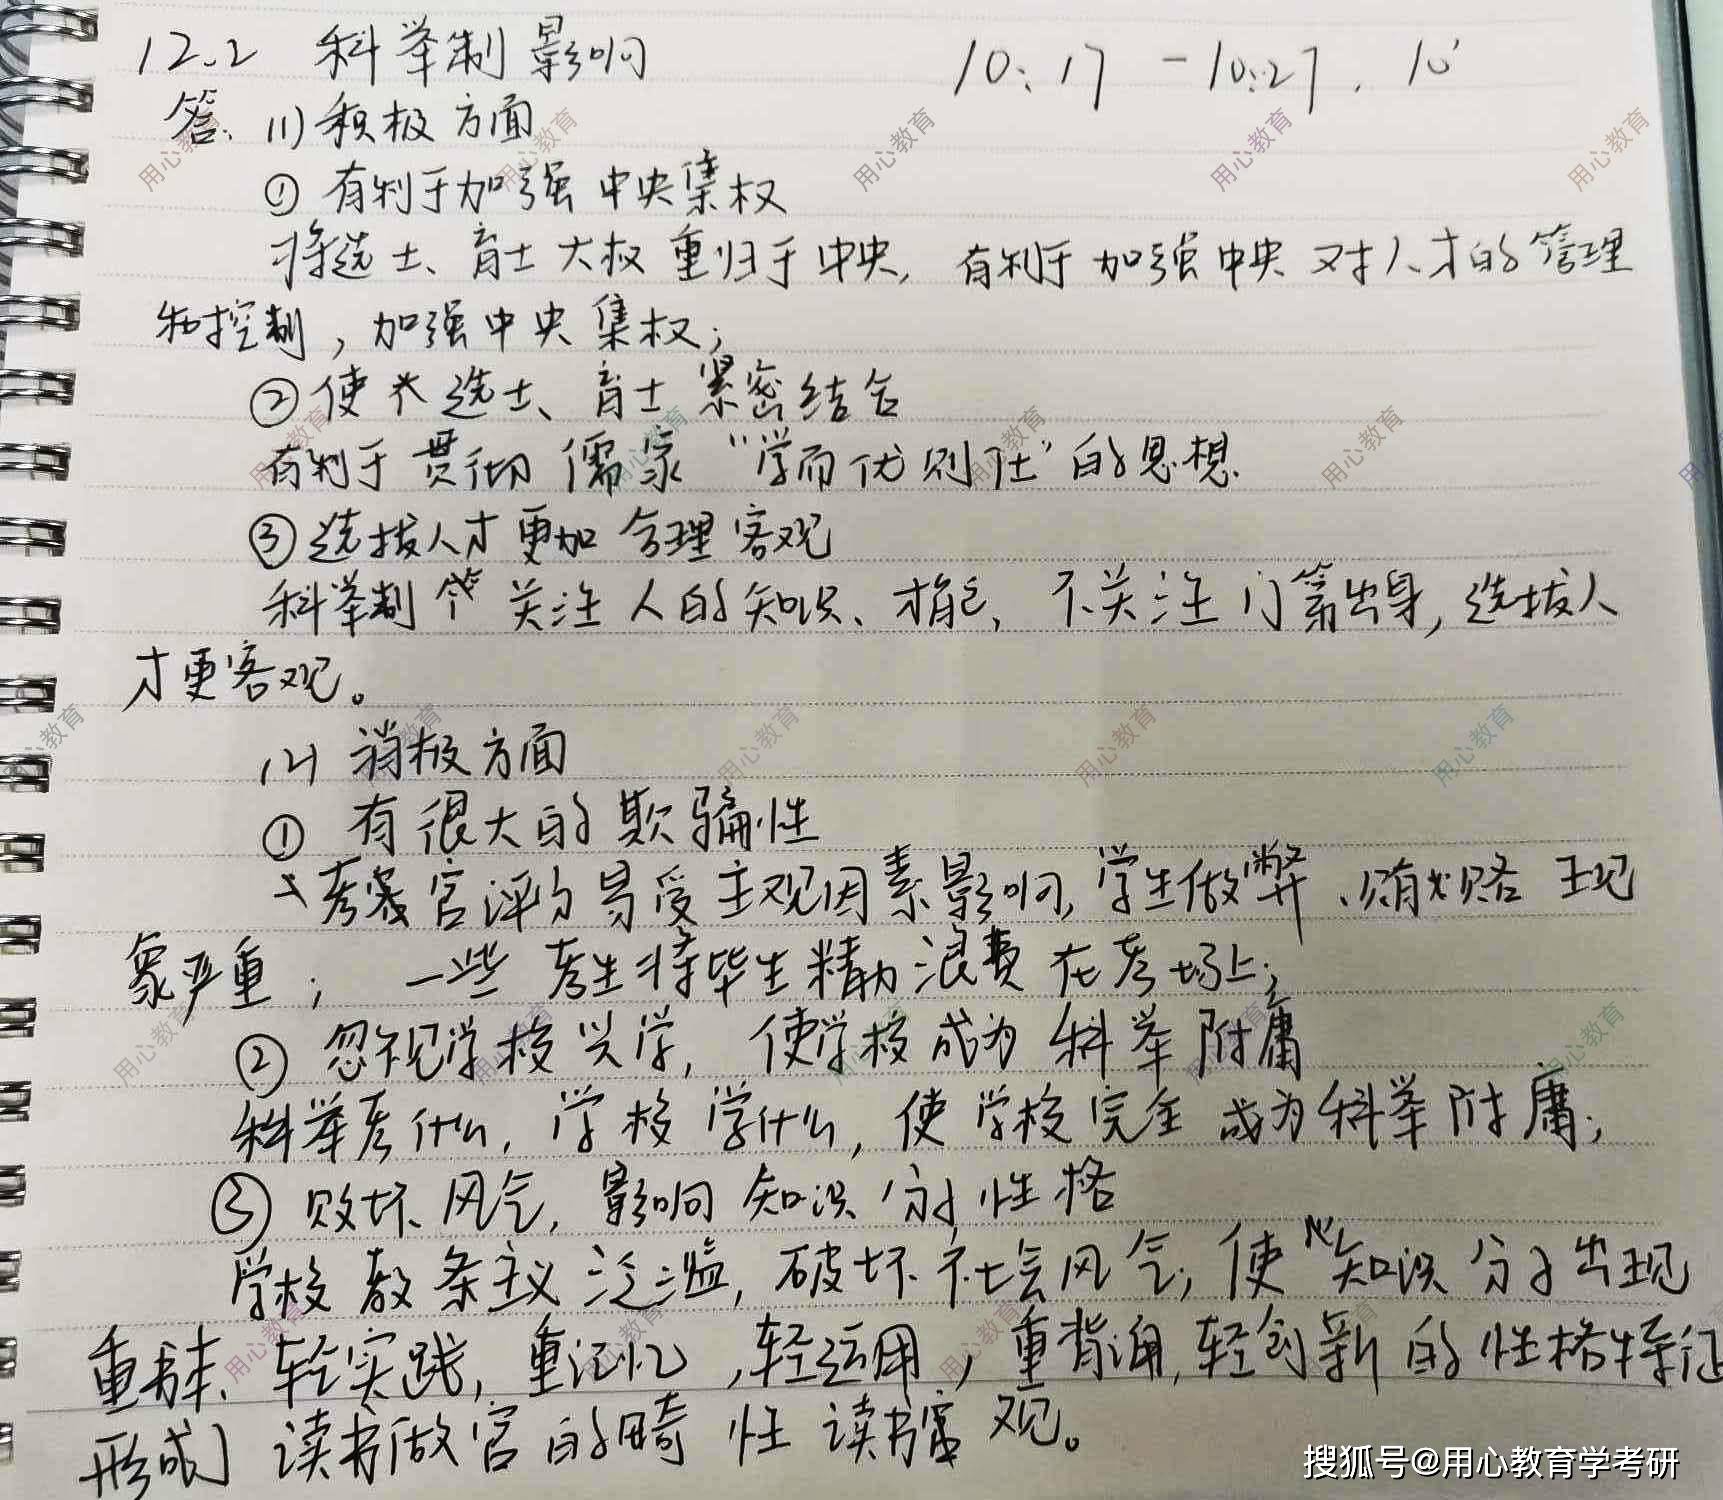 12.2 科举制影响 10:17-10:27. 10'
答: (1)积极方面
① 有利于加强中央集权
将选士、育士大权重归于中央, 有利于加强中央对人才的管理
和控制, 加强中央集权;
②使 选士、育士紧密结合
有利于贯彻儒家“学而优则仕”的思想.
③选拔人才更加合理客观
科举制 关注人的知识、才能, 不关注门第出身, 选拔人
才更客观。
(2) 消极方面
① 有很大的欺骗性
考官评分易受主观因素影响, 学生做弊、贿赂 现
象严重; 一些考生将毕生精力浪费在考场上;
② 忽视学校兴学, 使学校成为科举附庸
科举考什么, 学校学什么, 使学校完全成为科举附庸;
③ 败坏风气, 影响知识分子性格
学校教条主义泛滥, 破坏社会风气; 使知识分子出现
重书本、轻实践, 重记忆, 轻运用, 重背诵, 轻创新的性格特征
形成 读书做官的畸性读书 观。
用心教育
搜狐号@用心教育学考研